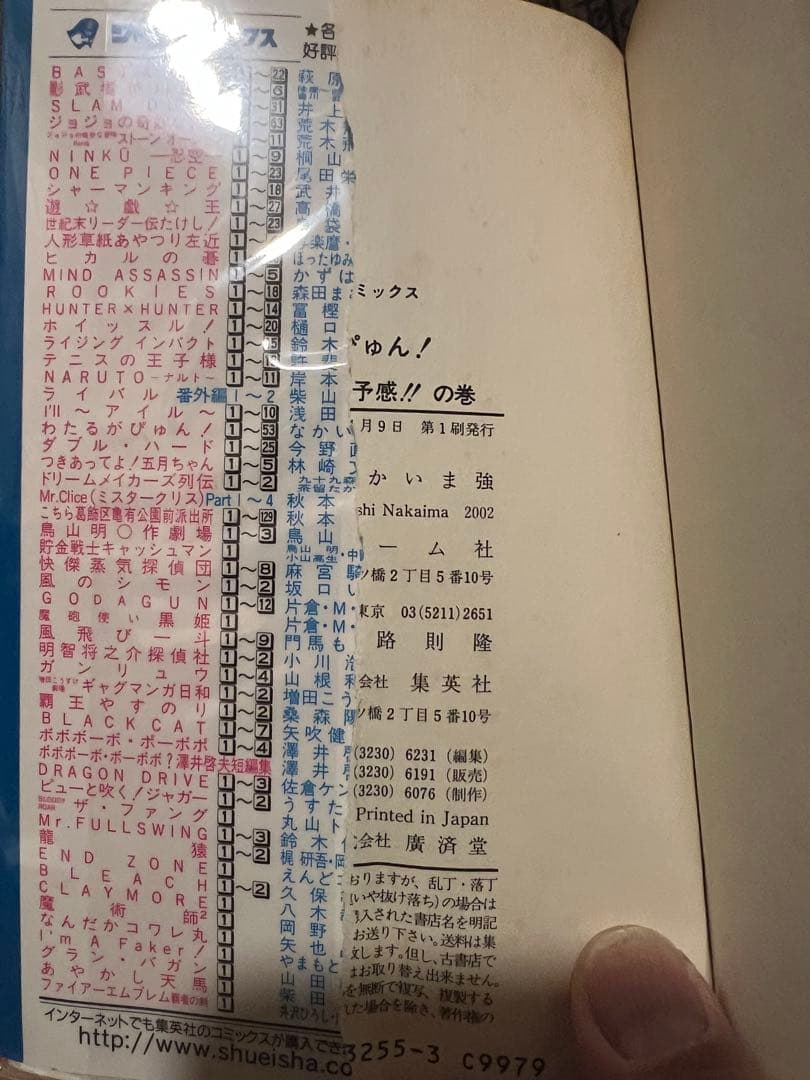 ジャンプ・コミックス
★各
好評
BAS 1～22 萩原
影武 ～6
SLAM D ～31 井上
ジョジョの奇 ～63 荒木
ジョジョの奇妙な冒険 Part6 ストーン オー ～11 荒木
NINKŪ ―忍空― 1～9 桐山
ONE PIECE 1～23 尾田栄
シャーマンキング 1～18 武井
遊☆戯☆王 1～27 高橋
世紀末リーダー伝たけし! 1～23 袋
人形草紙あやつり左近 1 楽麿・
ヒカルの碁 1 ほったゆみ
MIND ASSASSIN 1～5 かずは
ROOKIES 1～18 森田ま
HUNTER×HUNTER 1～14 冨樫
ホイッスル! 1～20 樋口
ライジング インパクト 1～15 鈴木
テニスの王子様 1 許斐
NARUTO―ナルト― 1～11 岸本
ライバル 番外編1～2 柴山
I'll～アイル～ 1～10 浅田
わたるがぴゅん! 1～53 なかい
ダブル・ハード 1～25 今野
つきあってよ!五月ちゃん 1～5 林崎
ドリームメイカーズ列伝 1～2
Mr.Clice(ミスタークリス) Part1～4 秋本
こちら葛飾区亀有公園前派出所 1～129 秋本
鳥山明〇作劇場 1～3 鳥山
貯金戦士キャッシュマン 1 鳥山 明・中 小山高生
快傑蒸気探偵団 1～8 麻宮騎
風のシモン 1～2 坂口い
GODAGUN 1～12 片倉・M・
魔砲使い黒姫 1 片倉・M・
風飛び一斗 1～9 門馬も
明智将之介探偵社 1～2 小川
ガンリュウ 1～4 山根
増田こうすけ劇場 ギャグマンガ日和 1～2 増田こう
覇王やすのり 1～2 桑森
BLACK CAT 1～7 矢吹健
ボボボーボ・ボーボボ 1～4 澤井
ボボボーボ・ボーボボ?澤井啓夫短編集 澤井
DRAGON DRIVE 1～3 佐倉ケン
ピューと吹く!ジャガー 1～2 うすた
BLOODY ROAR ザ・ファング 1 丸山ト
Mr.FULLSWING 1～3 鈴木
龍猿 1～2 梶研吾・岡
END ZONE 1 えんど
BLEACH 1～2 久保
CLAYMORE 1 八木
魔術師² 1 岡野
なんだかコワレ丸 1 矢也
I'm A Faker! 1 やまもと
グラン・バガン 1 山田
あやかし天馬 1 柴田
ファイアーエムブレム覇者の剣 1 井沢ひろし・
インターネットでも集英社のコミックスが購入でき
http://www.shueisha.co
ミックス
ぴゅん!
予感!!の巻
月9日 第1刷発行
かいま強
shi Nakaima 2002
ーム社
ツ橋2丁目5番10号
東京 03(5211)2651
路則隆
会社 集英社
ツ橋2丁目5番10号
(3230)6231(編集)
(3230)6191(販売)
(3230)6076(制作)
Printed in Japan
会社 廣済堂
おりますが、乱丁・落丁
違いや抜け落ち)の場合は
購入された書店名を明記
お送り下さい。送料は集
致します。但し、古書店で
はお取り替え出来ません。
を無断で複写、複製する
た場合を除き、著作権の
3255-3 C9979